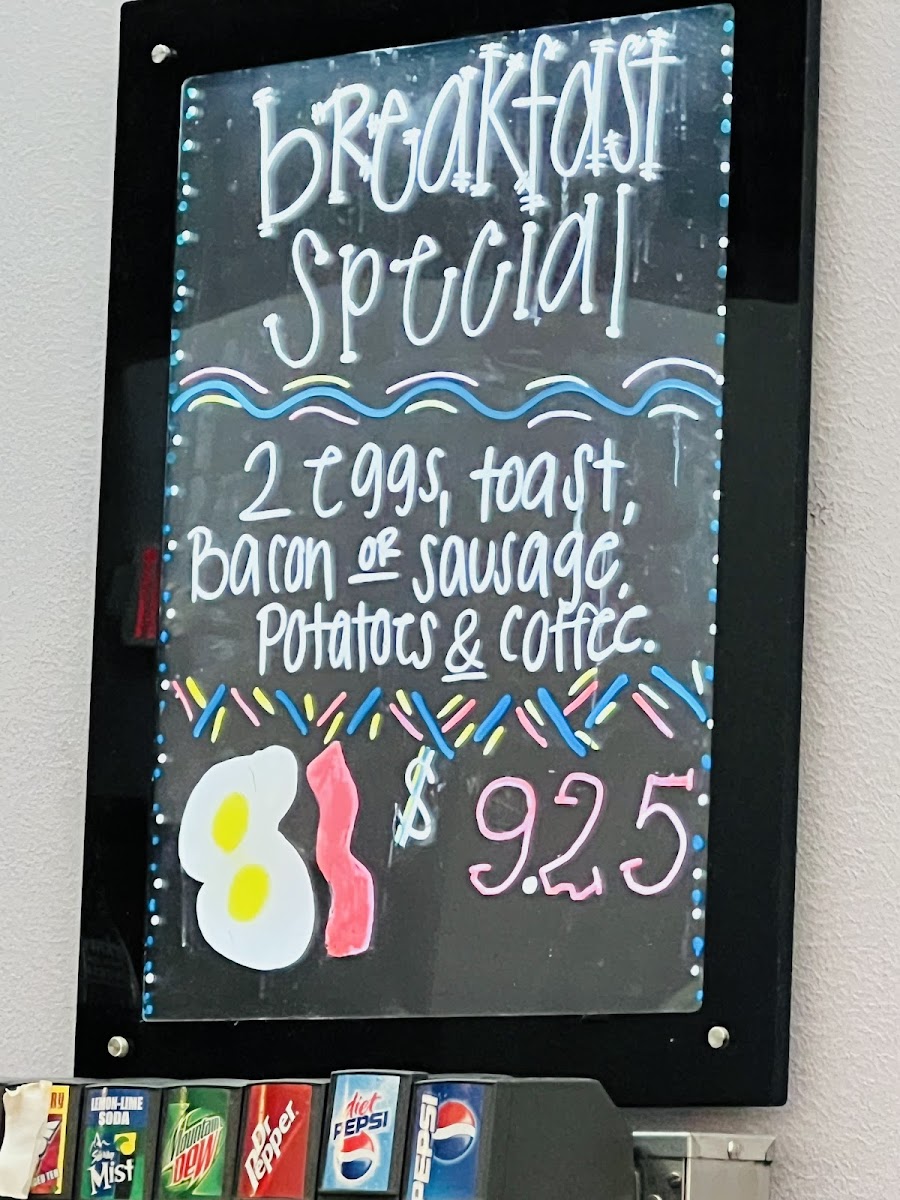 breakfast
special
2 eggs, toast,
Bacon OR sausage.
Potatoes & coffee.
$ 9.25
LEMON-LIME
SODA
Mist
Mountain
DEW
Dr Pepper
diet
PEPSI
PEPSI